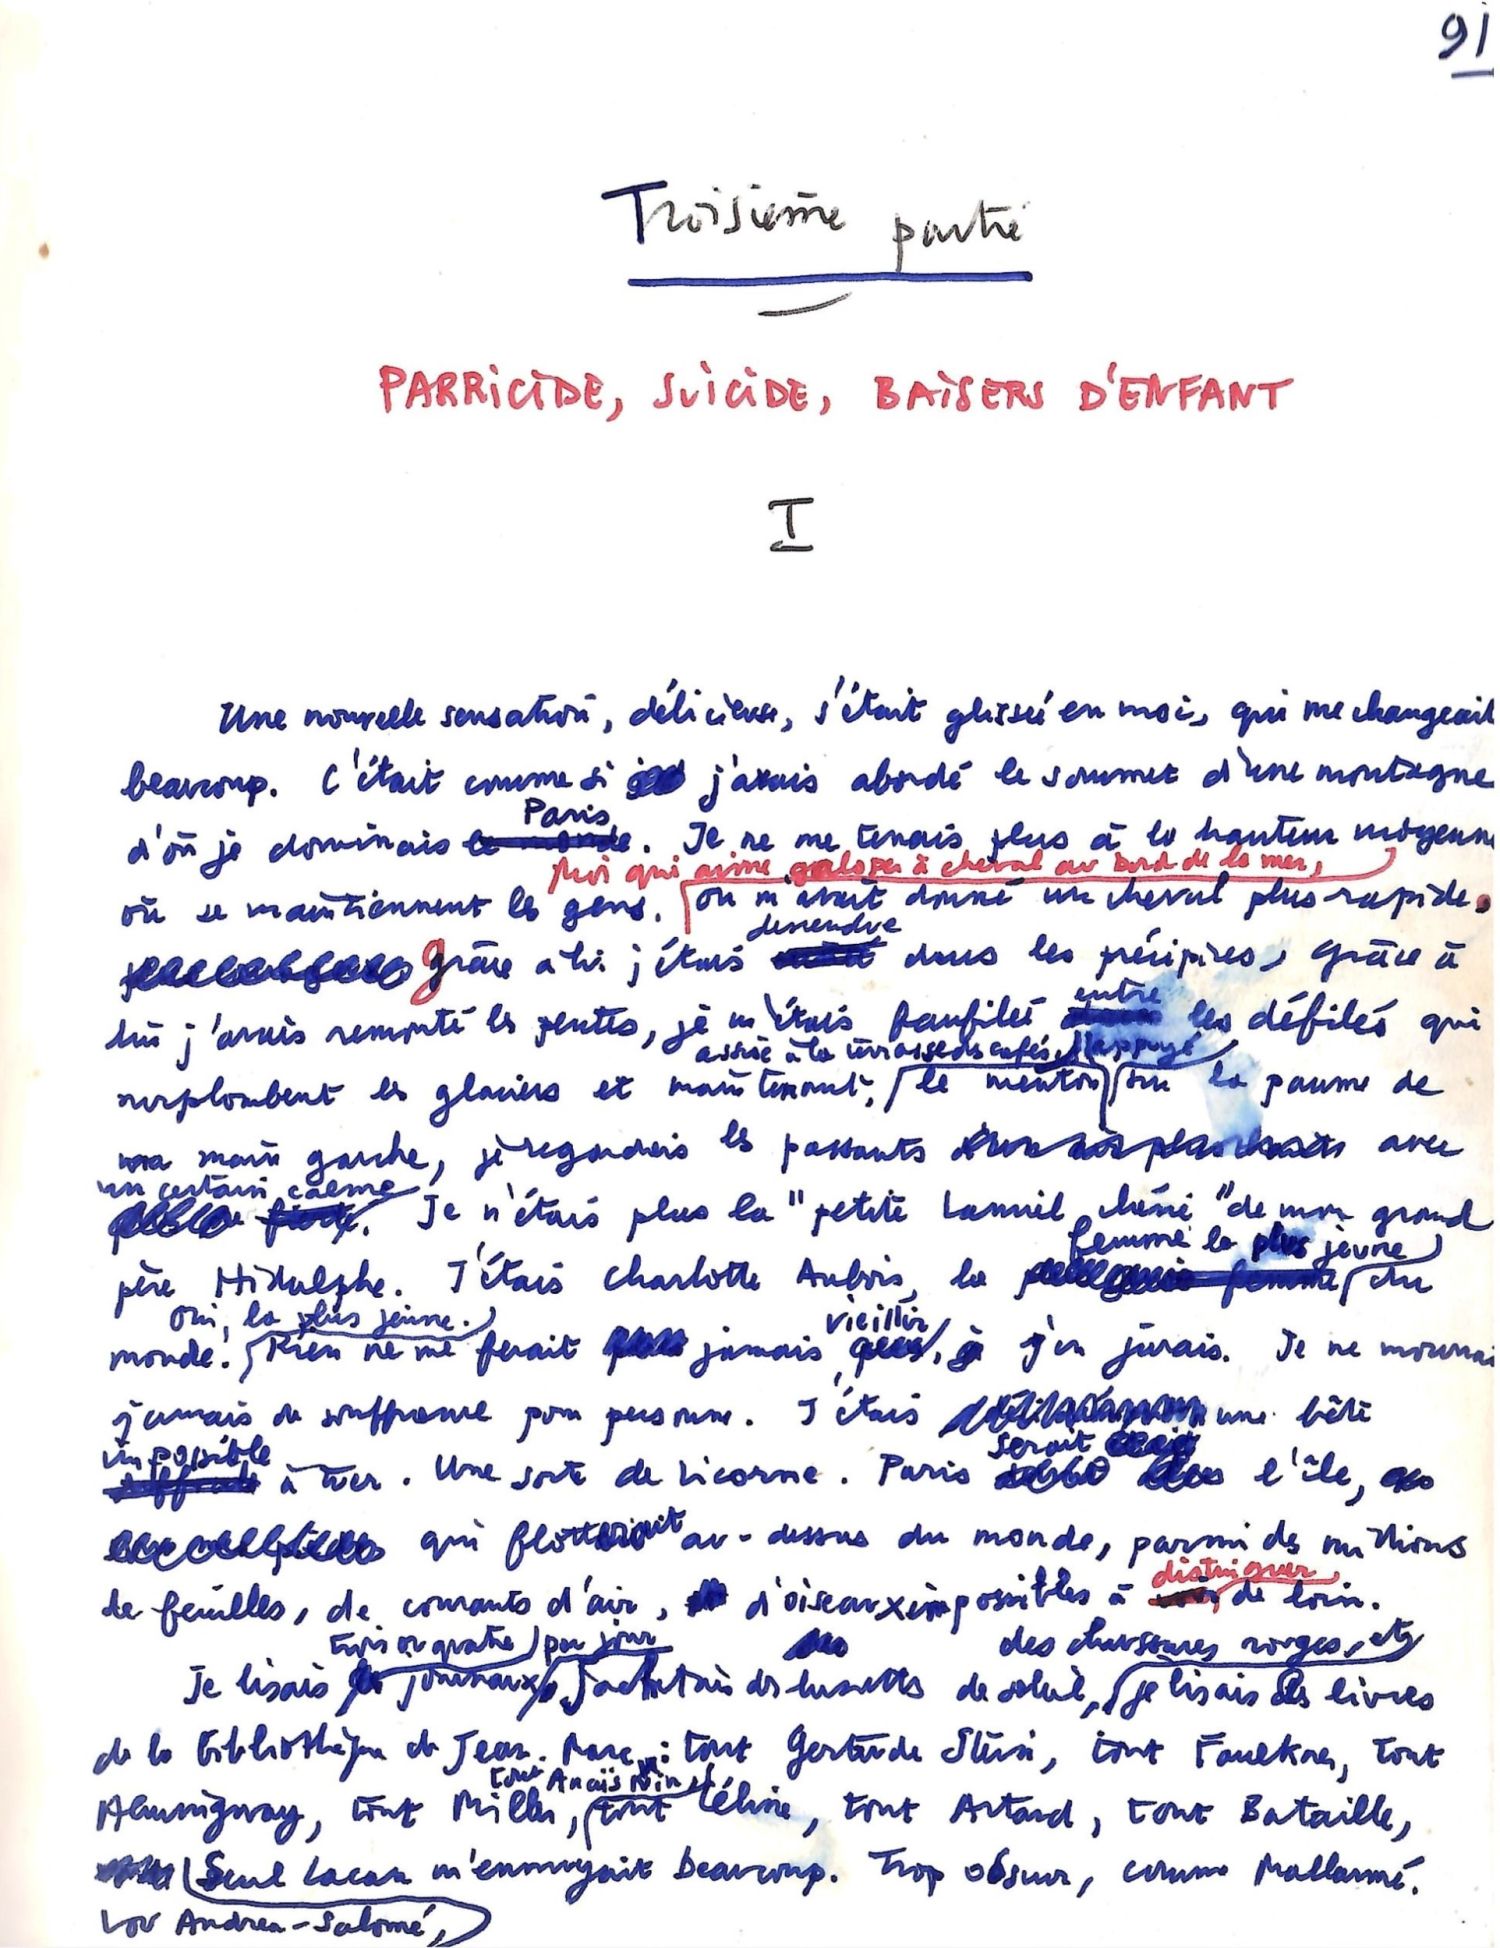 91
Troisième partie
PARRICIDE, SUICIDE, BAISERS D'ENFANT
I
Une nouvelle sensation, délicieuse, s'était glissée en moi, qui me changeait
beaucoup. C'était comme si j'avais abordé le sommet d'une montagne
Paris
d'où je dominais le monde. Je ne me tenais plus à la hauteur moyenne
Moi qui aime galoper à cheval au bord de la mer,
où se maintiennent les gens. on m'avait donné un cheval plus rapide.
descendre
Grâce à lui j'étais dans les précipices, grâce à
entre
lui j'avais remonté les pentes, je m'étais faufilée les défilés qui
assise à la terrasse des cafés, appuyé
surplombent les glaciers et maintenant, le menton sur la paume de
ma main gauche, je regardais les passants avec
un certain calme
fierté. Je n'étais plus la "petite Lamiel chérie" de mon grand
femme la plus jeune
père Hidulphe. J'étais Charlotte Aubois, la femme du
Oui, la plus jeune.
monde. Rien ne me ferait jamais
vieillir
, j'en jurais. Je ne mourrai
jamais de souffrance pour personne. J'étais une bête
impossible
serait
à tuer. Une sorte de licorne. Paris l'île,
qui flotterait au-dessus du monde, parmi des millions
distinguer
de feuilles, de courants d'air, d'oiseaux impossibles à de loin.
trois ou quatre par jour
des chaussures rouges, etc
Je lisais journaux, j'achetais des lunettes de soleil, je lisais les livres
de la bibliothèque de Jean-Marc : tout Gertrude Stein, tout Faulkner, tout
tout Anaïs Nin
Hemingway, tout Miller, tout Céline, tout Artaud, tout Bataille,
Seul Lacan m'ennuyait beaucoup. Trop obscur, comme Mallarmé.
Lou Andrea-Salomé,